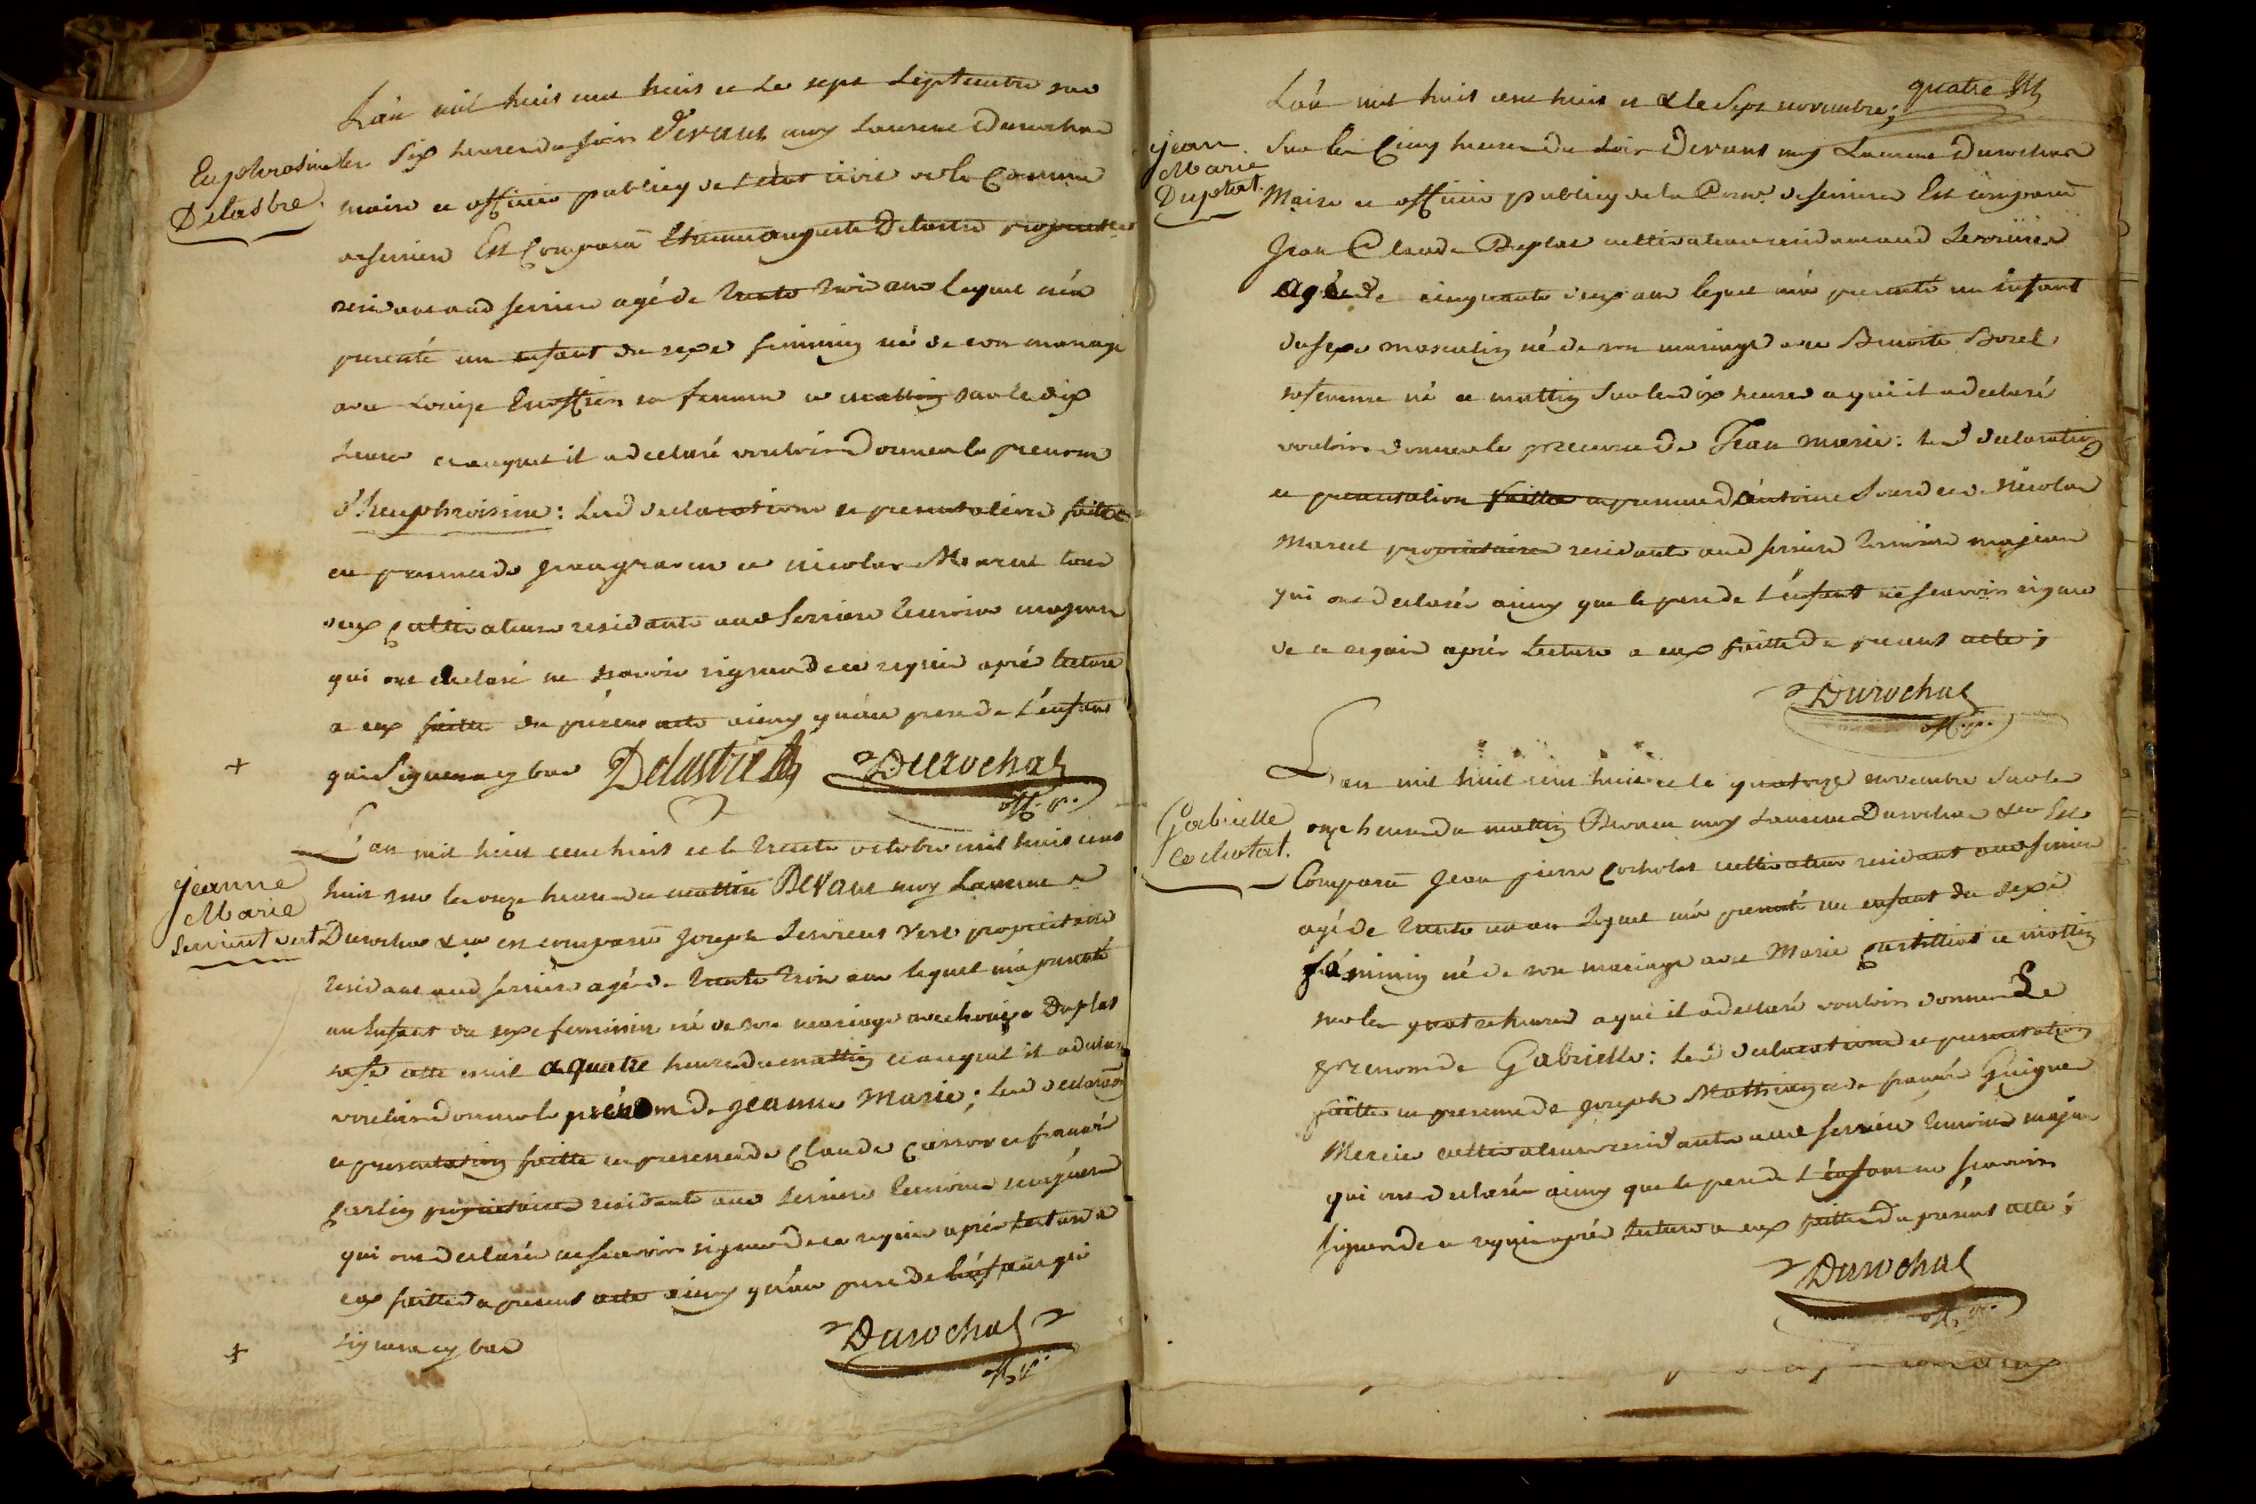 L'an mil huit cent huit et le sept septembre sur
Euphrosine
Delastre.
les six heures du soir Devant moy Laurent Durochat
maire et officier publicq de l'état civil de la Commune
de serriere Est Comparu Etienne auguste Delastre proprietaire
residant aud serriere agé de trente trois ans lequel m'a
presenté un enfant du sexe feminin né de son mariage
avec Louise sa femme ce mattin sur le dix
heures et auquel il a declaré vouloir Donner le prenom
d'heuphroisine : Lesd declarations et presentations faittes
en presence de jean et nicolas Marcet tous
deux Cultivateurs residants aud Serriere temoins majeurs
qui ont declaré ne scavoir signer de ce requis aprés lecture
a eux faitte du présent acte ainsy qu'au pere de l'enfant
qui Signera cy bas Delastre Durochat
off. p.
L'an mil huit cent huit et le trente octobre mil huit cent
jeanne
Marie
serriant vert
huit sur les onze heures du mattin Devant moy Laurent
Durochat &a est comparu joseph Vert proprietaire
residant aud serriere agé de trente trois ans lequel m'a presenté
un Enfant du sexe feminin né de son mariage avec Louise Duplat
sa fe cette nuit a quatre heures du mattin et auquel il a declaré
vouloir donner le prénom de jeanne Marie ; lesd declaraõn
et presentation faitte en presence de Claude et francois
proprietaires residants aud serriere temoins majeurs
qui ont declarés ne scavoir signer de ce requis aprés lecture a
eux faitte du present acte ainsy qu'au pere de l'enfant qui
signera cy bas
Durochat
off. p.
quatre
L'an mil huit cent huit et & le Sept novembre ;
jean
Marie
Duplat.
Sur les Cinq heures du soir Devant moy Laurent Durochat
Maire et officier publicq de la Comne. de serriere Est comparu
Jean Claude Duplat cultivateur residant aud serriere
agé de cinquante deux ans lequel m'a presenté un enfant
du sexe masculin né de son mariage avec Benoite Borel
sa femme né ce mattin Sur les dix heures a qui il a declaré
vouloir donner le prenom de Jean marie : lesd declaration
et presentation faittes en presence d'antoine et Nicolas
Marcet proprietaires residants aud serriere temoins majeurs
qui ont declarés ainsy que le pere de l'enfant ne scavoir signer
de ce requis aprés lecture a eux faitte du present acte ;
Durochat
off. p.
L'an mil huit cent huit et le quatorze novembre Sur les
Gabrielle
Cochotat.
onze heures du mattin Devant moy Laurent Durochat &a Est
Comparu Jean pierre Cochotat cultivateur residant aud serriere
agé de trente un an lequel m'a presenté un enfant du sexe
féminin né de son mariage avec Marie ce mattin
sur les quatre heures a qui il a declaré vouloir donner Le
prenom de Gabrielle : lesd declarations et presentation
faittes en presence de joseph Mathieu et de francois Guigue
Mercier cultivateurs residants aud serriere temoins majeurs
qui ont declarés ainsy que le pere de l'enfant ne scavoir
signer de ce requis aprés lecture a eux faitte du présent acte ;
Durochat
off. p.